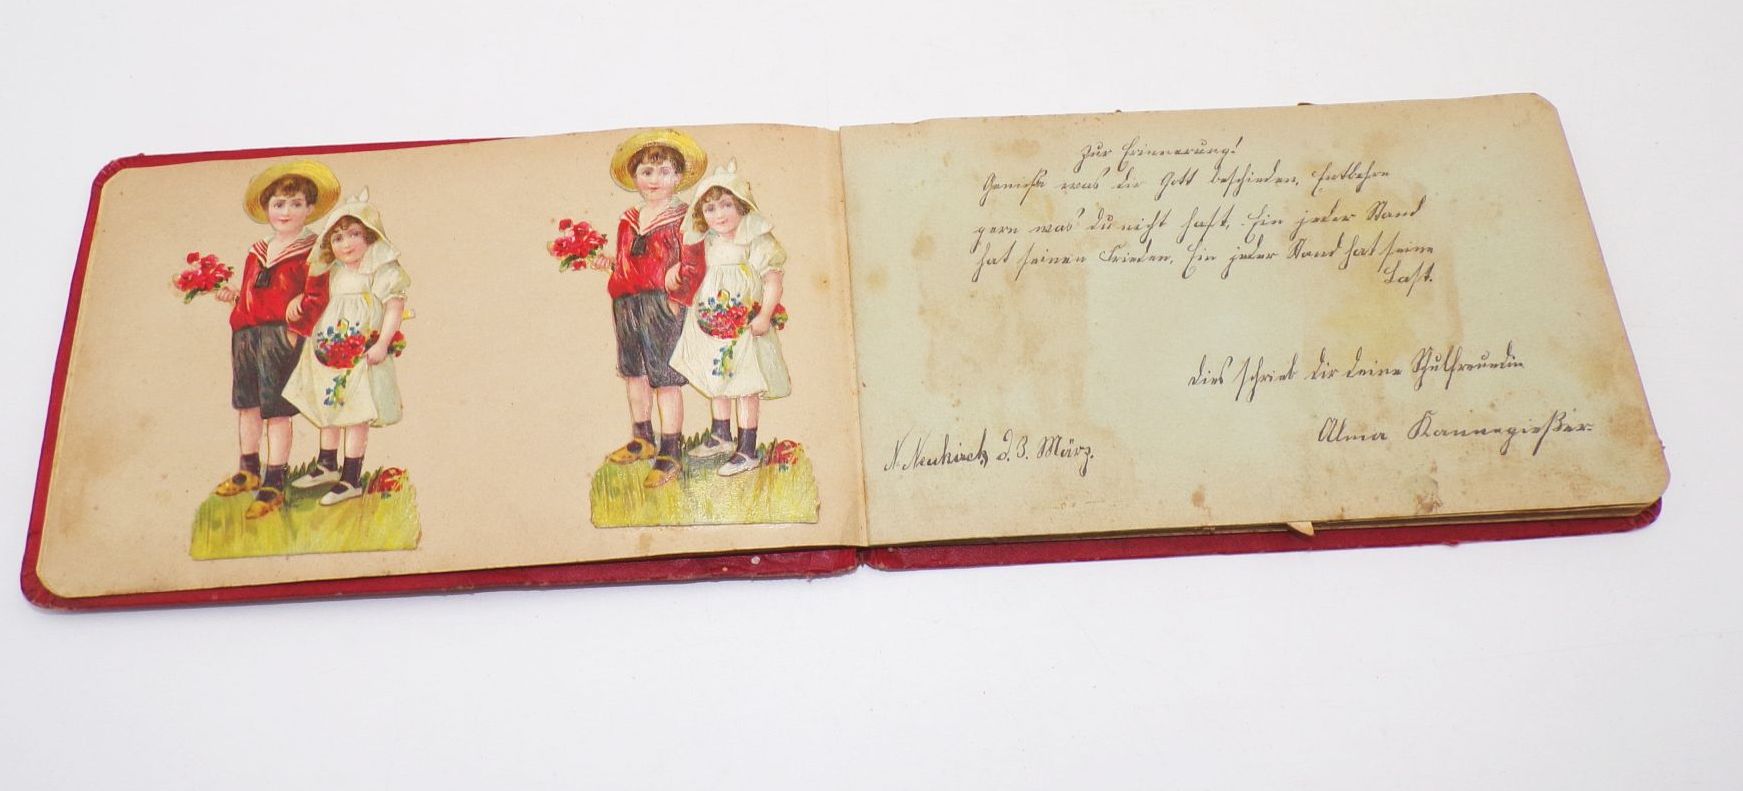 Zur Erinnerung!
Genieße was dir Gott beschieden, Entbehre
gern was du nicht hast, Ein jeder Stand
hat seinen Frieden, Ein jeder Stand hat seine
Last.
Dies schrieb dir deine Schulfreundin
Alma Kannegießer.
N. Neukirch, d. 3. März.